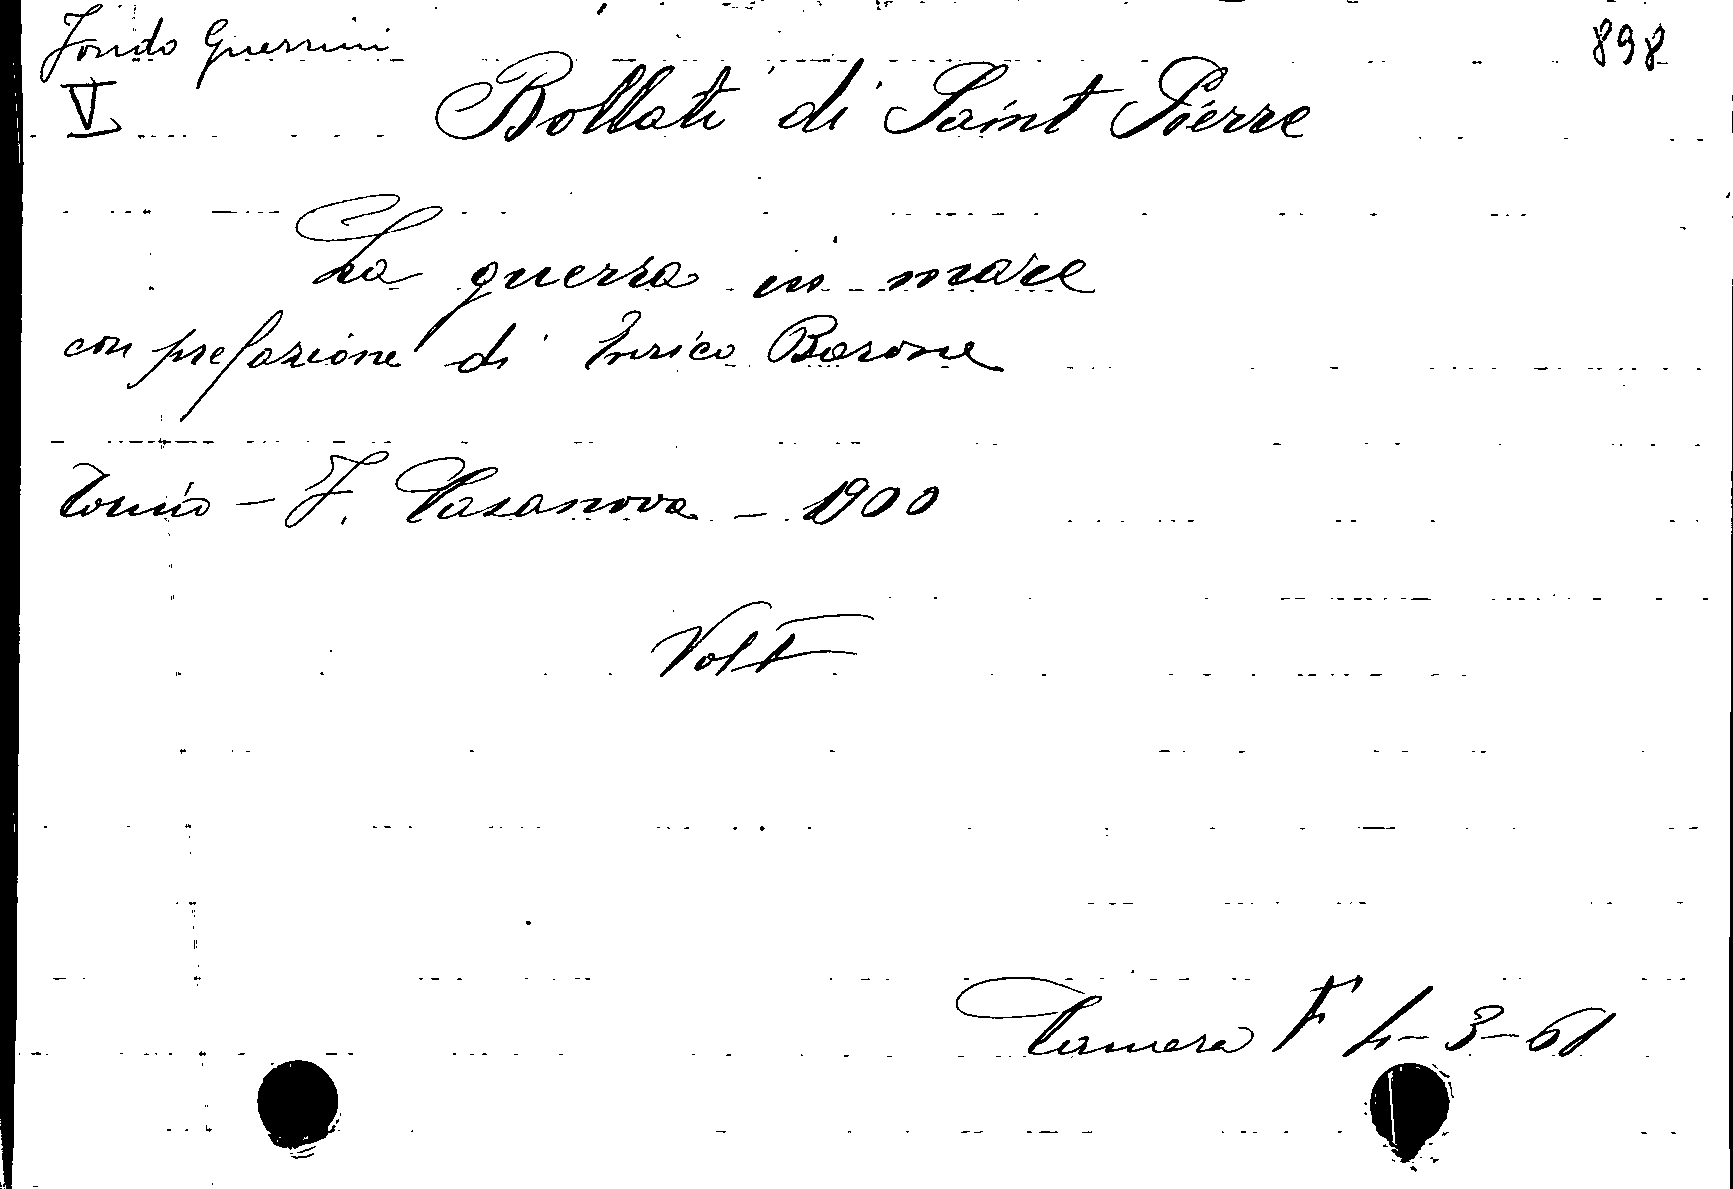 Fondo Guerrini
898
V
Bollati di Saint Pierre
La guerra in mare
con prefazione di Enrico Barone
Torino - F. Casanova - 1900
Vol 1
Camera F 4-3-61